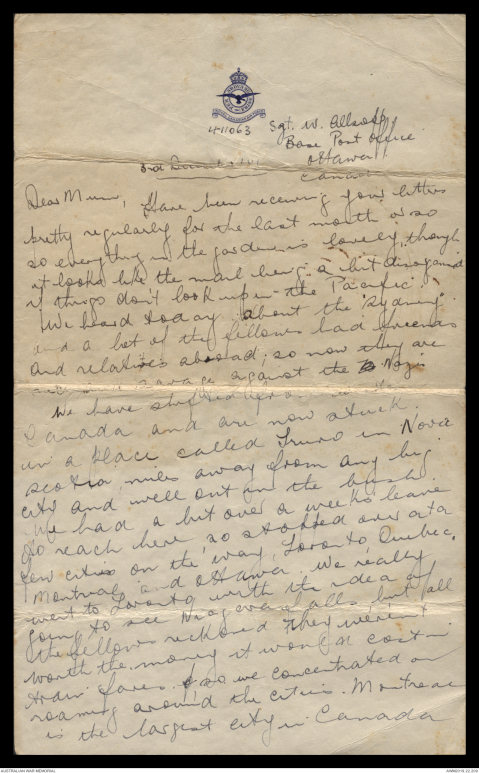 411063 Sgt. W. Allsopp
Base Post Office
Ottawa
Canada
3rd December
Dear Mum, Have been receiving your letters
pretty regularly for the last month or so
so everything in the garden is lovely, though
it looks like the mail being a bit disorganised
if things don't look up in the Pacific.
We heard today about the "Sydney"
and a lot of the fellows had friends
and relatives aboard, so now they are
savage against the Nazis
We have shifted
Canada and are now stuck
in a place called Truro in Nova
Scotia, miles away from any big
city and well out in the bush
We had a bit over a weeks leave
to reach here so stopped over at a
few cities on the way, Toronto Quebec,
Montreal and Ottawa. We really
went to Toronto with the idea of
going to see Niagara Falls but all
the fellows reckoned they weren't
worth the money it would cost in
train fares. so we concentrated on
roaming around the cities. Montreal
is the largest city in Canada
AUSTRALIAN WAR MEMORIAL